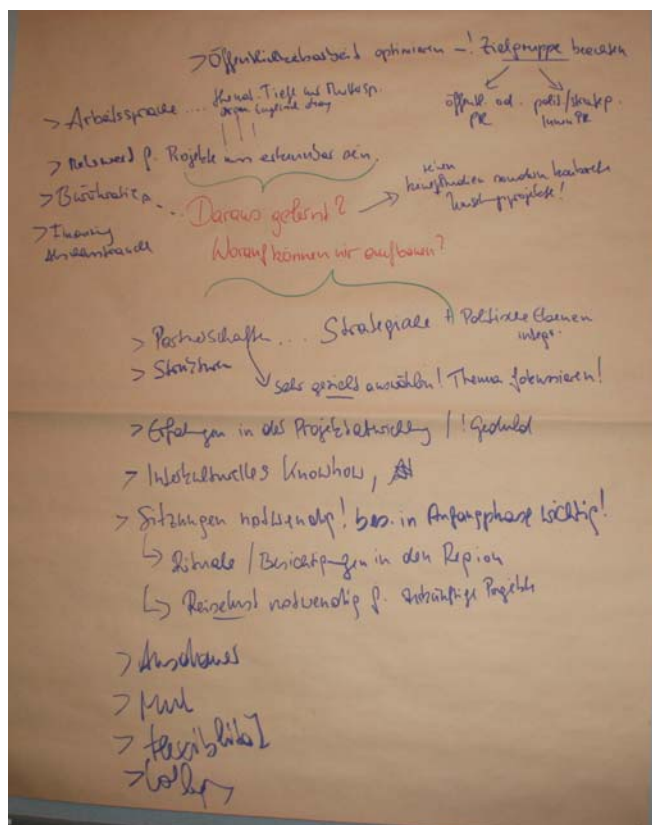 > Öffentlichkeitsarbeit optimieren –! Zielgruppe beachten
öffentl. od. polit./strateg.
PR PR
> Arbeitssprache ....
> Mehrwert f. Projekte muss erkennbar sein.
> Bürokratie ...
>
Daraus gelernt?
Worauf können wir aufbauen?
> Partnerschaften ... Strategische + Politische Ebenen
integr.
> Strukturen
sehr gezielt auswählen! Thema fokussieren!
> Erfahrungen in der Projektentwicklung / ! Geduld
> Interkulturelles Knowhow,
> Sitzungen notwendig! bes. in Anfangsphase wichtig!
Rituale / Besichtigungen in den Region
Reiselust notwendig f. zukünftige Projekte
> Ausdauer
> Mut
> Flexibilität
>